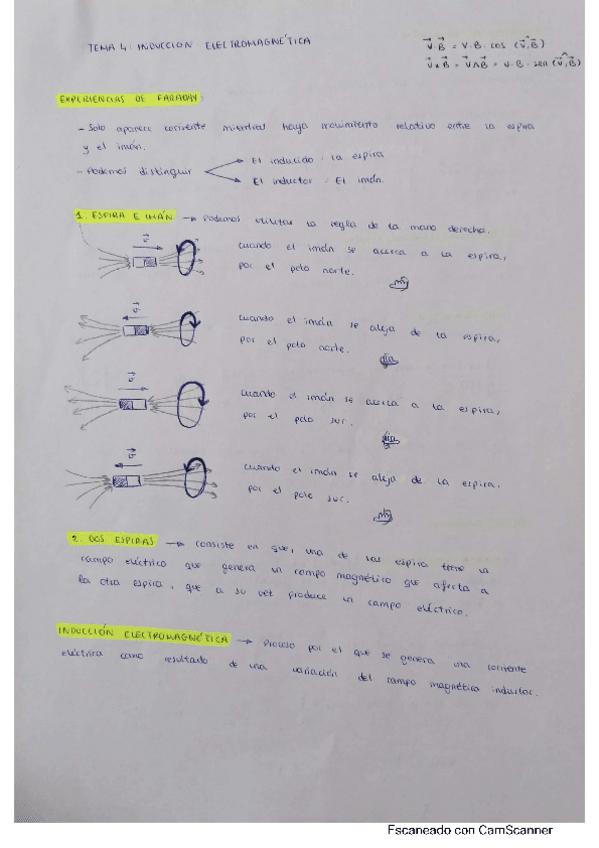 TEMA 4: INDUCCION ELECTROMAGNÉTICA
V⃗·B⃗ = V·B·cos (V⃗,B⃗)
V⃗×B⃗ = V⃗∧B⃗ = V·B·sen (V⃗,B⃗)
EXPERIENCIAS DE FARADAY:
- Solo aparece corriente mientras haya movimiento relativo entre la espira
y el imán.
- Podemos distinguir
El inducido: la espira
El inductor: El imán.
1. ESPIRA E IMÁN → Podemos utilizar la regla de la mano derecha.
v⃗
cuando el imán se acerca a la espira,
por el polo norte.
v⃗
cuando el imán se aleja de la espira,
por el polo norte.
v⃗
cuando el imán se acerca a la espira,
por el polo sur.
v⃗
cuando el imán se aleja de la espira.
por el polo sur.
2. DOS ESPIRAS → consiste en que, una de las espira tiene un
campo eléctrico que genera un campo magnético que afecta a
la otra espira, que a su vez produce un campo eléctrico.
INDUCCIÓN ELECTROMAGNÉTICA → Proceso por el que se genera una corriente
eléctrica como resultado de una variación del campo magnético inductor.
Escaneado con CamScanner